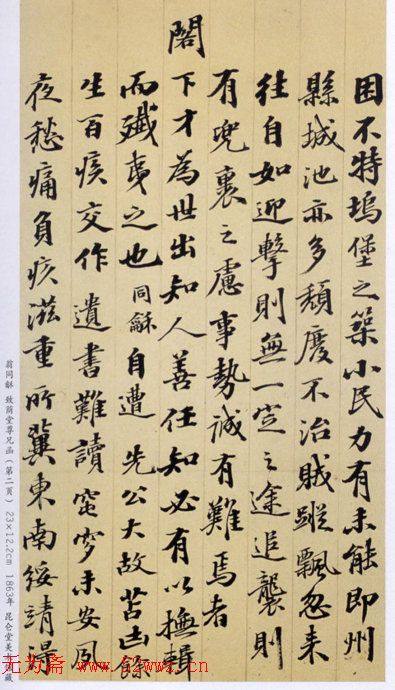 困不特塢堡之築小民力有未能即州
縣城池亦多頹廢不治賊蹤飄忽來
往自如迎擊則無一定之途追襲則
有兜裹之慮事勢誠有難焉者
閣
下才為世出知人善任知必有以撫輯
而殲夷之也同龢自遭先公大故苫凷餘
生百疾交作遺書難讀窀穸未安夙
夜愁痛負疚滋重所冀東南綏靖得
翁同龢 致荫堂尊兄函(第二頁) 23×12.2cm 1863年 昆仑堂美 藏
无为斋 www.52wwz.cn